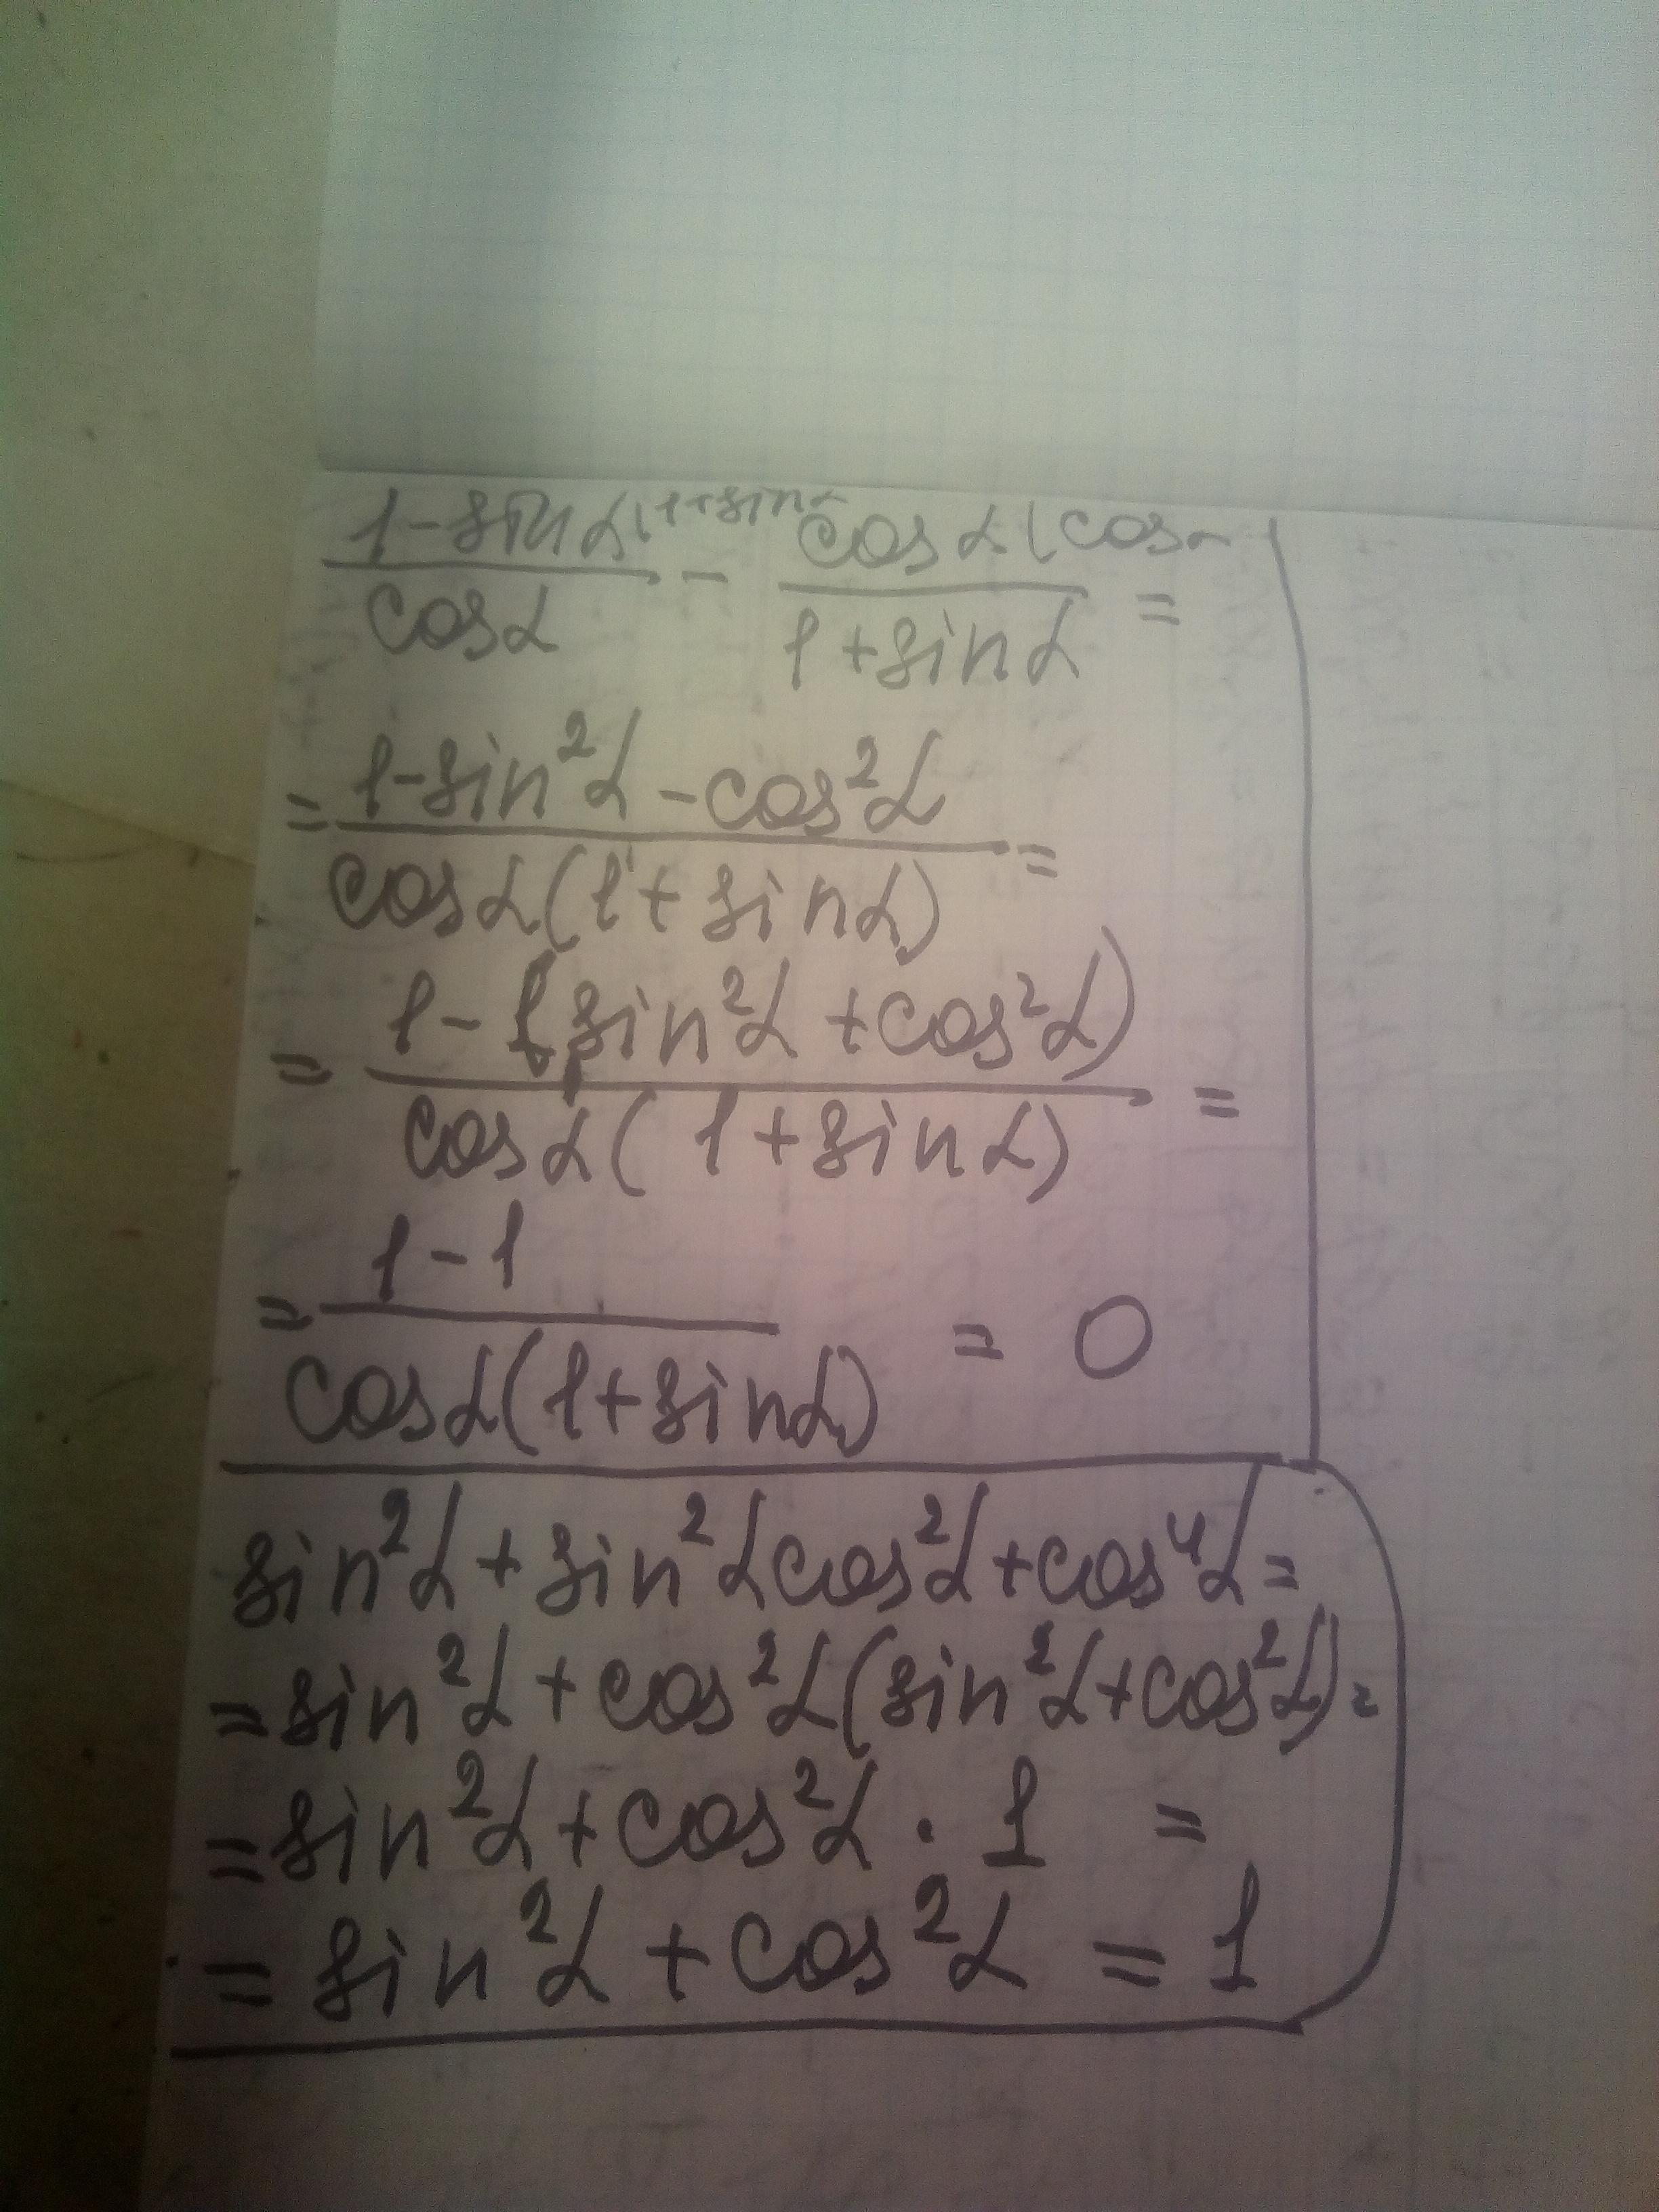 1-sinα\1+sinα / cosα - cosα\cosα / 1+sinα =
= 1-sin²α-cos²α / cosα(1+sinα) =
= 1-(sin²α+cos²α) / cosα(1+sinα) =
= 1-1 / cosα(1+sinα) = 0
sin²α+sin²αcos²α+cos⁴α=
=sin²α+cos²α(sin²α+cos²α)=
=sin²α+cos²α·1 =
=sin²α+cos²α=1